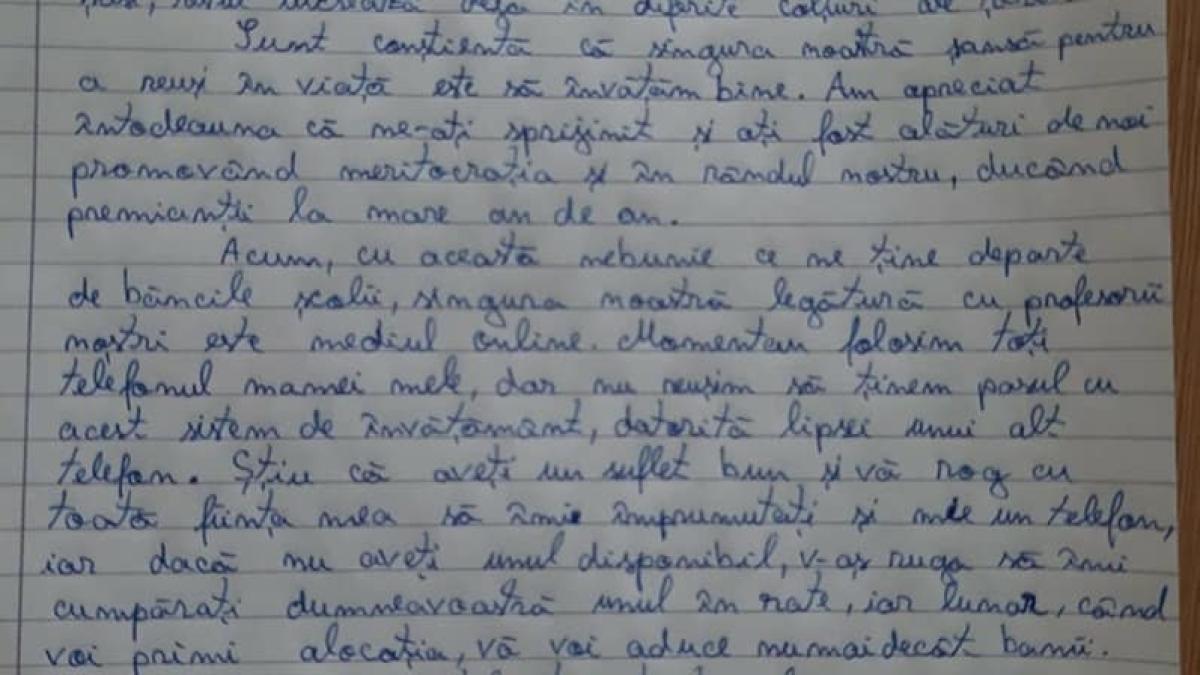 în diferite colțuri de
Sunt conștientă că singura noastră șansă pentru
a reuși în viață este să învățăm bine. Am apreciat
întodeauna că ne-ați sprijinit și ați fost alături de noi
promovând meritocrația și în rândul nostru, ducând
premianții la mare an de an.
Acum, cu această nebunie ce ne ține departe
de băncile școlii, singura noastră legătură cu profesorii
noștri este mediul online. Momentan folosim toți
telefonul mamei mele, dar nu reușim să ținem pasul cu
acest sistem de învățământ, datorită lipsei unui alt
telefon. Știu că aveți un suflet bun și vă rog cu
toată ființa mea să îmi împrumutați și mie un telefon,
iar dacă nu aveți unul disponibil, v-aș ruga să îmi
cumpărați dumneavoastră unul în rate, iar lunar, când
voi primi alocația, vă voi aduce numaidecât banii.